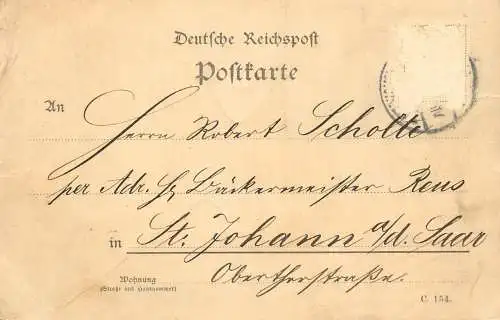 Deutsche Reichspost
Postkarte
An
Herrn Robert Scholte
per Adr. H. Bäckermeister Reus
in St. Johann a/d. Saar
Oberthorstraße.
Wohnung
(Straße und Hausnummer)
C. 154.